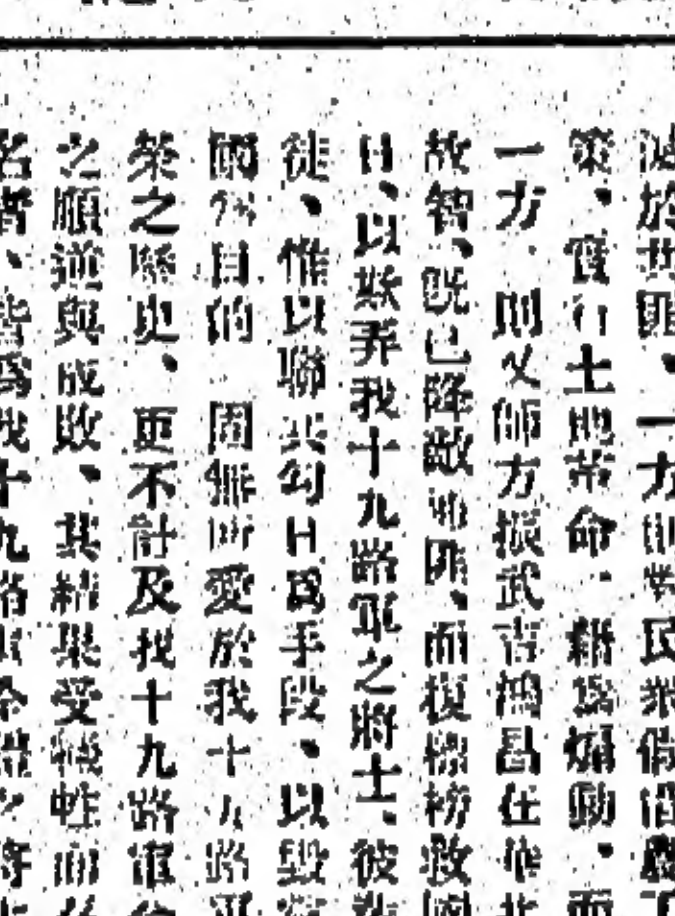 於共匪、一方則對民衆假借農工
策、實行土地革命、藉爲煽動、而
一方、則又師方振武吉鴻昌在華北
故智、既已降敵通匪、而復標榜救國
日、以欺弄我十九路軍之將士、彼輩
徒、惟以聯共勾日爲手段、以毀
國爲目的、固無所愛於我十九路軍
榮之歷史、更不計及我十九路軍
之順逆與成敗、其結果受犧牲而
名者、皆爲我十九路軍令譽之將士